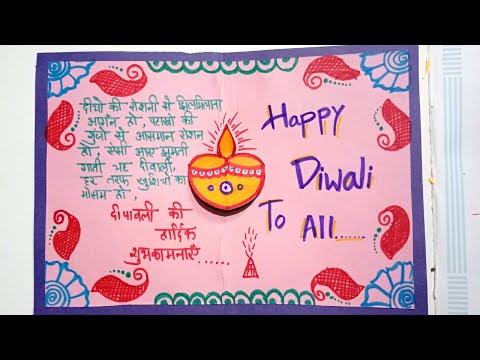 दीपो की रोशनी से झिलमिलाता
आगँन हो, पटाखो की
गुंजो से आसमान रोशन
हो, ऐसी आए झुमती
गाती यह दीवाली,
हर तरफ खुशियों का
मौसम हो,
दीपावली की
हार्दिक
शुभकामनाएँ.....
Happy
Diwali
To All......